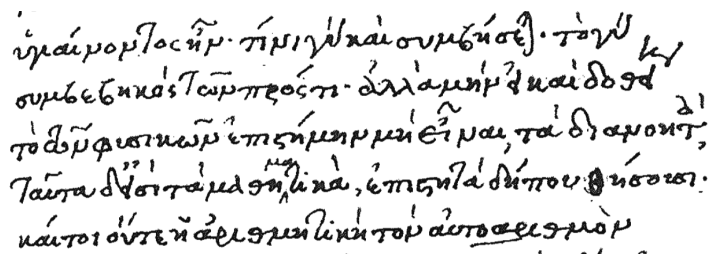 ὑγιαίνοντος ἦν· τίνι γοῦν καὶ συμβήσεται· τὸ γοῦν
συμβεβηκὸς τῶν πρός τι· ἀλλὰ μὴν εἰ καὶ δοθεῖ
τὸ τῶν φυσικῶν ἐπιστήμην μὴ εἶναι, τὰ διανοητὰ
ταῦτα δ' εἰσὶ τὰ μαθηματικὰ, ἐπιστητὰ δήπου θήσουσι·
καίτοι οὔτε ἡ ἀριθμητικὴ τὸν αὐτοαριθμὸν